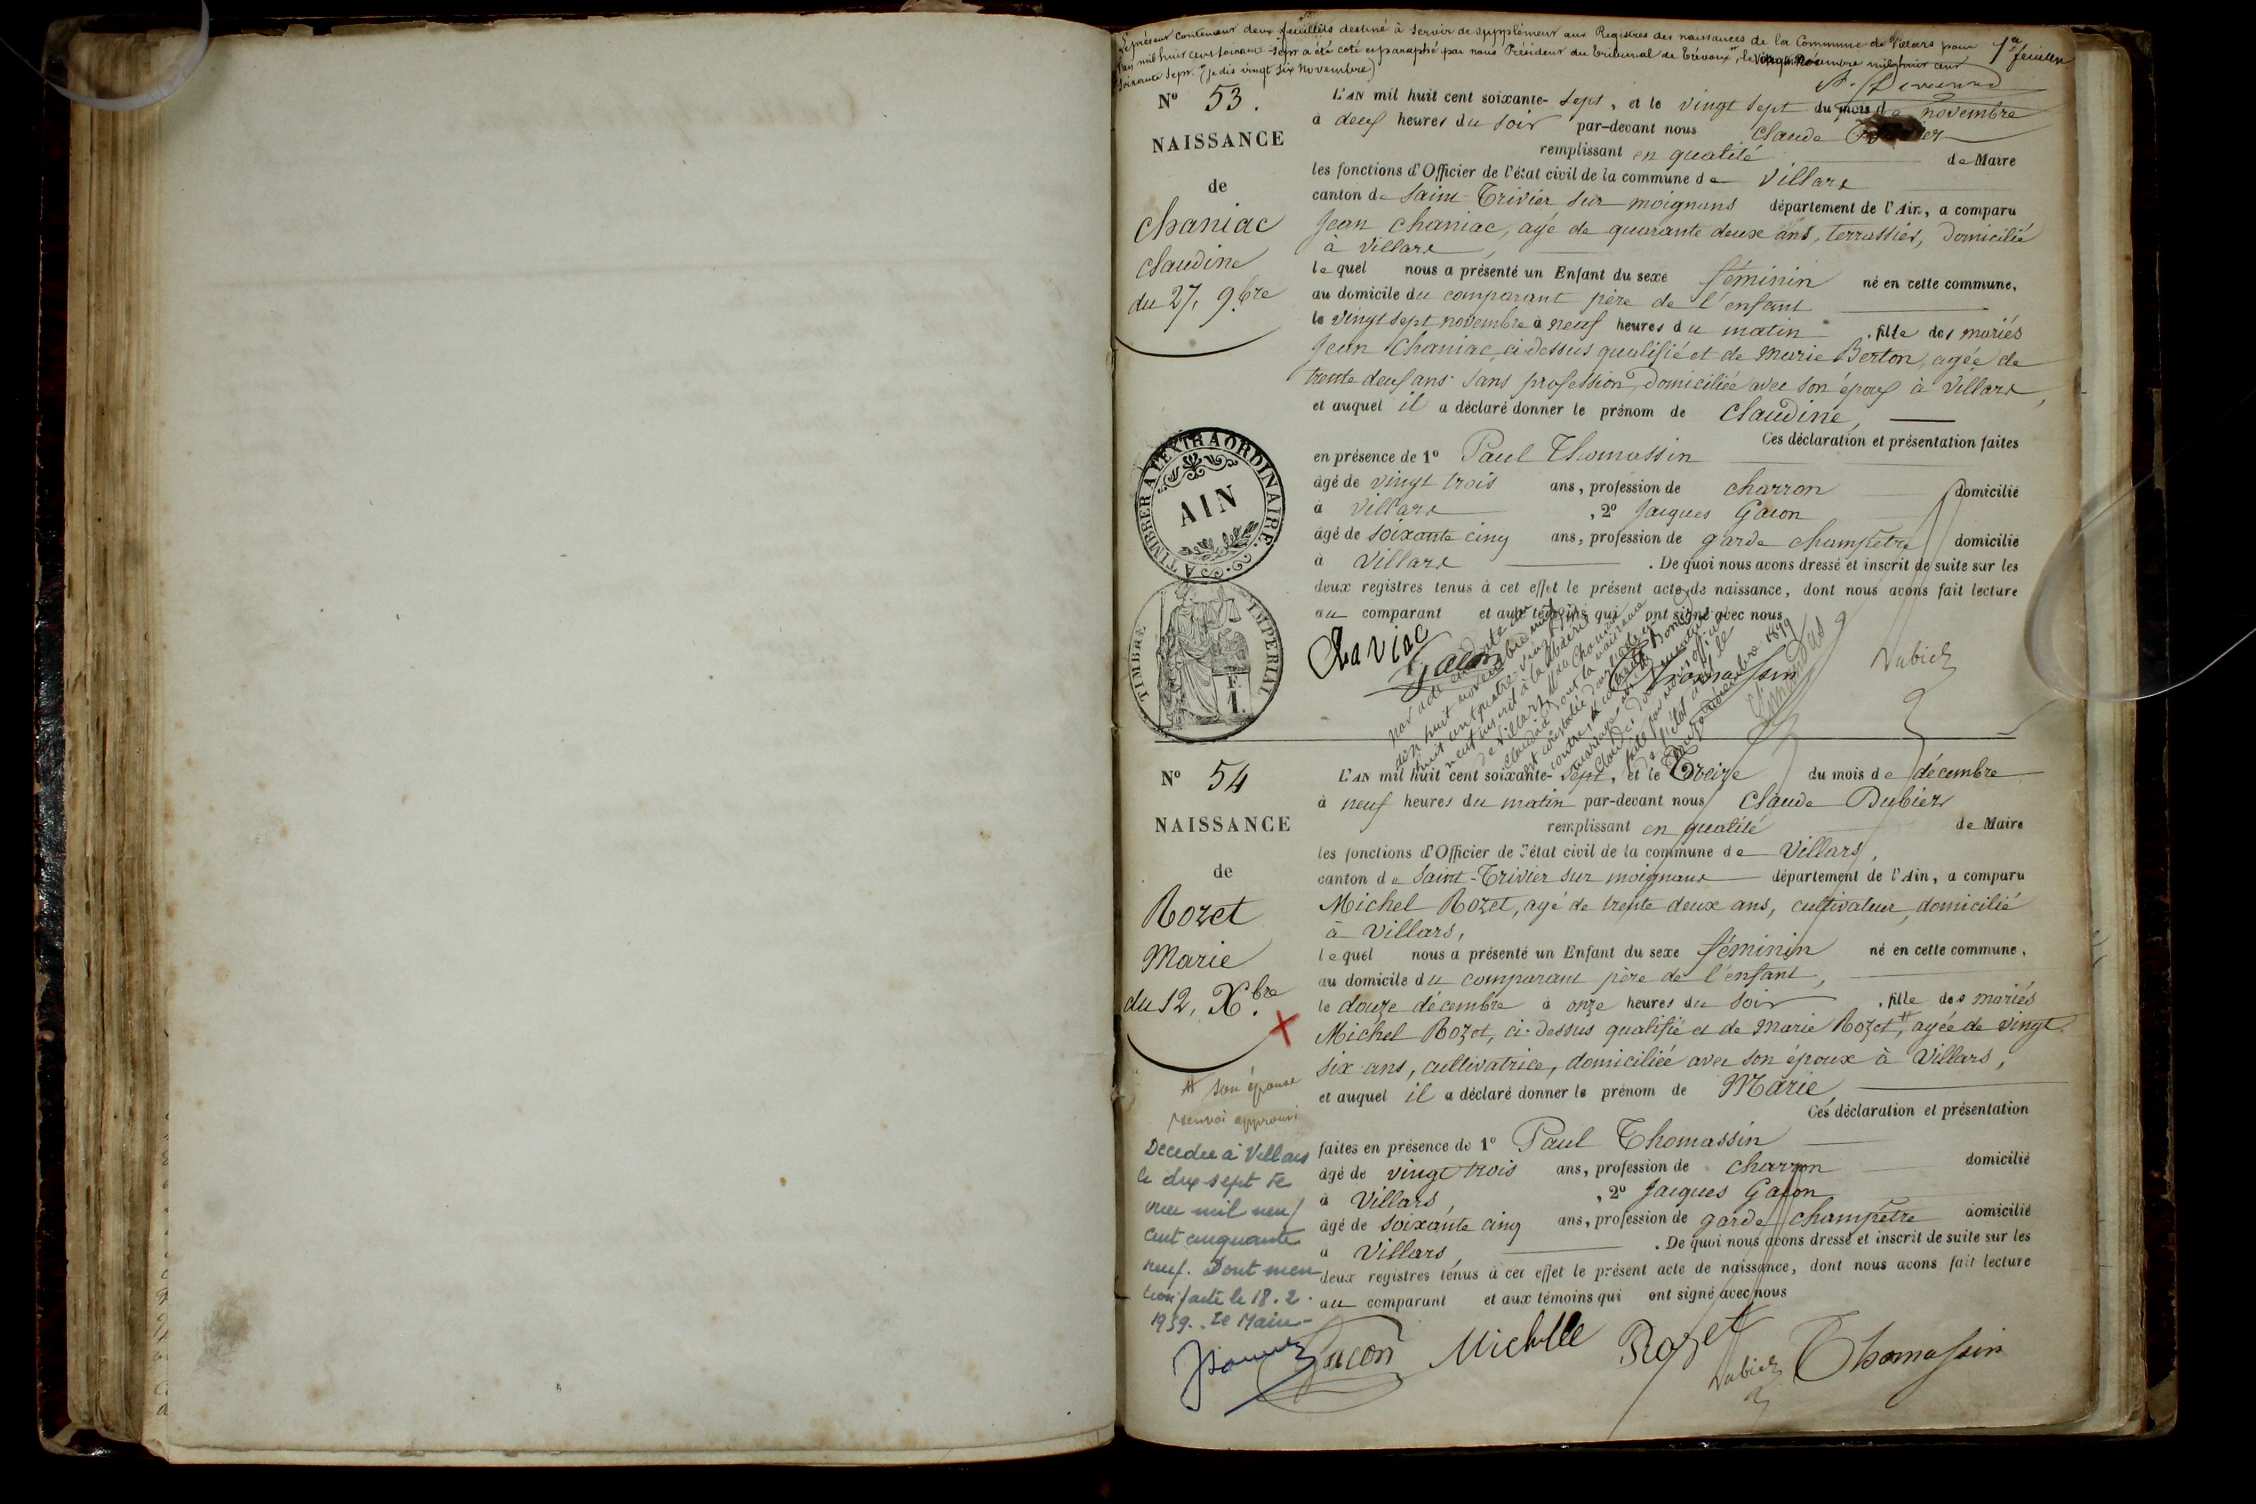 Le présent contenant deux feuillets destiné à servir de supplément aux Registres des naissances de la Commune de Villars pour
l'an mil huit cent soixante-sept a été coté et paraphé par nous Président du tribunal de Trévoux, le novembre mil huit cent
soixante sept. (je dis vingt six novembre)
1er feuillet
No 53.
NAISSANCE
de
Chaniac
Claudine
du 27, 9.bre
L'AN mil huit cent soixante-sept, et le vingt sept du mois de novembre
à deux heures du soir par-devant nous Claude
remplissant en qualité de Maire
les fonctions d'Officier de l'état civil de la commune de Villars
canton de Saint-Trivier sur moignans département de l'Ain, a comparu
Jean Chaniac, agé de quarante deux ans, terrassier, domicilié
à Villars,
le quel nous a présenté un Enfant du sexe féminin né en cette commune,
au domicile du comparant père de l'enfant
le vingt sept novembre à neuf heures du matin , fille des mariés
Jean Chaniac, ci-dessus qualifié et de Marie Berton, agée de
trente deux ans sans profession, domiciliée avec son époux à Villars,
et auquel il a déclaré donner le prénom de Claudine,
Ces déclaration et présentation faites
en présence de 1º Paul Thomassin
âgé de vingt trois ans, profession de charron domicilié
à Villars , 2º Jacques Gacon
âgé de soixante cinq ans, profession de garde champêtre domicilié
à Villars . De quoi nous avons dressé et inscrit de suite sur les
deux registres tenus à cet effet le présent acte de naissance, dont nous avons fait lecture
au comparant et aux témoins qui ont signé avec nous
A TIMBRER A L'EXTRAORDINAIRE.
AIN
TIMBRE IMPERIAL
F.
1.
Chaviac
Gacon
Thomassin
Dubiez
par acte en date du
dix huit novembre mil
huit cent quatre-vingt dix
neuf inscrit à la mairie
de Villars
Claudine dont la naissance
est constatée d'autre part
contre
mariage avec
fait par nous officier
de l'état civil le
novembre 1899
No 54
NAISSANCE
de
Rozet
Marie
du 12, X.bre
L'AN mil huit cent soixante-sept, et le Treize du mois de décembre
à neuf heures du matin par-devant nous Claude Dubiez
remplissant en qualité de Maire
les fonctions d'Officier de l'état civil de la commune de Villars,
canton de Saint-Trivier sur moignans département de l'Ain, a comparu
Michel Rozet, agé de trente deux ans, cultivateur, domicilié
à Villars,
le quel nous a présenté un Enfant du sexe féminin né en cette commune,
au domicile du comparant père de l'enfant,
le douze décembre à onze heures du soir , fille des mariés
Michel Rozet, ci-dessus qualifié et de Marie Rozet #, agée de vingt
six ans, cultivatrice, domiciliée avec son époux à Villars,
et auquel il a déclaré donner le prénom de Marie
Ces déclaration et présentation
faites en présence de 1º Paul Thomassin
âgé de vingt trois ans, profession de charron domicilié
à Villars, , 2º Jacques Gacon
âgé de soixante cinq ans, profession de garde champêtre domicilié
à Villars, . De quoi nous avons dressé et inscrit de suite sur les
deux registres tenus à cet effet le présent acte de naissance, dont nous avons fait lecture
au comparant et aux témoins qui ont signé avec nous
# son épouse
renvoi approuvé
Decedee à Villars
le dix sept fe
vrier mil neuf
cent cinquante
neuf. Dont men
tion faite le 18.2.
1959. Le Maire-
Gacon
Michelle Rozet
Dubiez
Thomassin